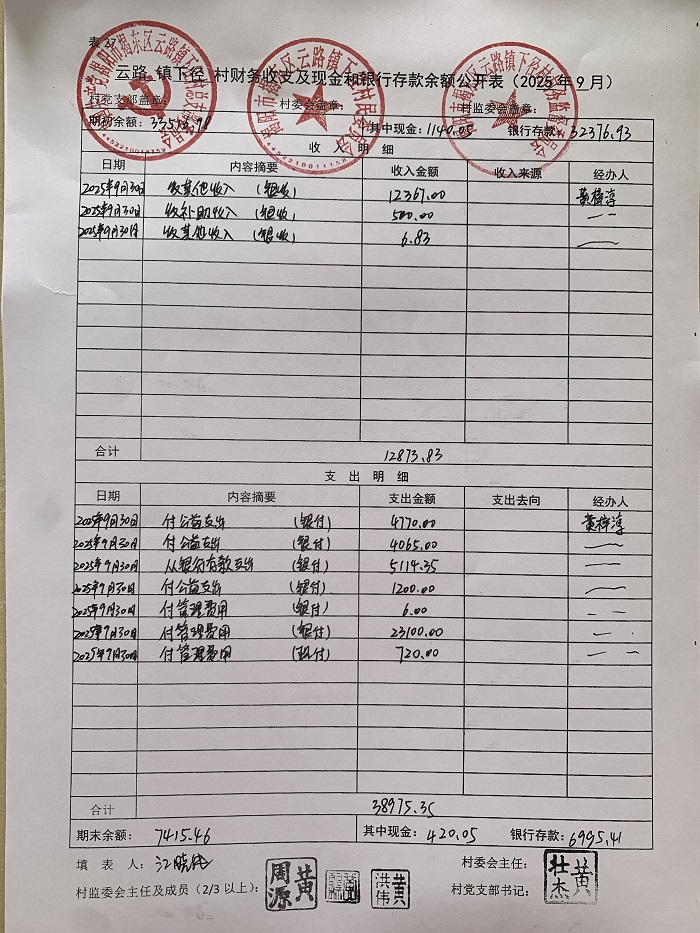 表27
云路 镇下径 村财务收支及现金和银行存款余额公开表（2025 年 9 月）
村党支部盖章： 村委会盖章： 村监委会盖章：
期初余额：33516.98 其中现金：1140.05 银行存款：32376.93
收 入 明 细
日期 内容摘要 收入金额 收入来源 经办人
2025年9月30日 收其他收入 （银收） 12367.00 黄梓淳
2025年9月30日 收补助收入 （银收） 500.00 一一
2025年9月30日 收其他收入 （银收） 6.83
合计 12873.83
支 出 明 细
日期 内容摘要 支出金额 支出去向 经办人
2025年9月30日 付公益支出 （银付） 4770.00 黄梓淳
2025年9月30日 付公益支出 （银付） 4065.00
2025年9月30日 从银行存款支出 （银付） 5114.35
2025年9月30日 付公益支出 （银付） 1200.00
2025年9月30日 付管理费用 （银付） 6.00
2025年9月30日 付管理费用 （银付） 23100.00
2025年9月30日 付管理费用 （现付） 720.00
合计 38975.35
期末余额： 7415.46 其中现金：420.05 银行存款：6995.41
填 表 人：江晓伟 村委会主任：
村监委会主任及成员（2/3 以上）： 黄周源 黄洪伟 村党支部书记： 黄壮杰